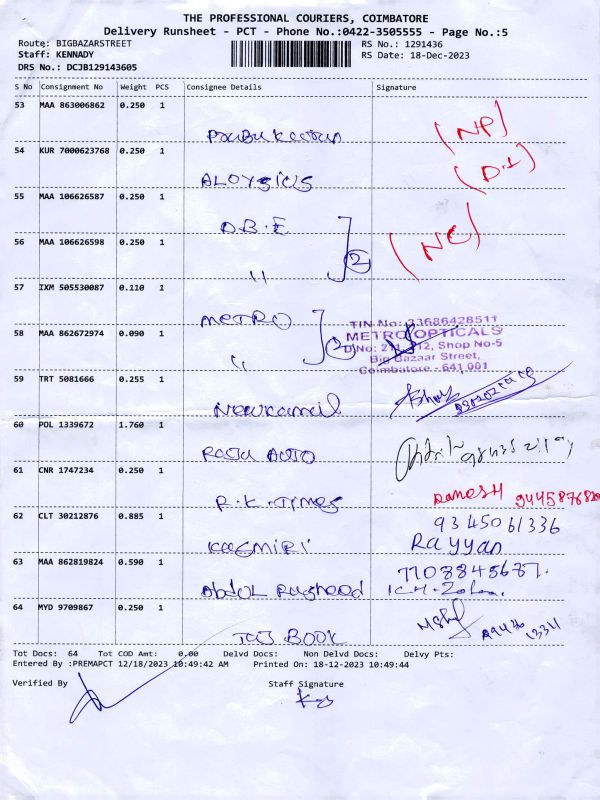 THE PROFESSIONAL COURIERS, COIMBATORE
Delivery Runsheet - PCT - Phone No.:0422-3505555 - Page No.:5
Route: BIGBAZARSTREET RS No.: 1291436
Staff: KENNADY RS Date: 18-Dec-2023
DRS No.: DCJB129143605
S No Consignment No Weight PCS Consignee Details Signature
53 MAA 863006862 0.250 1
(NP)
54 KUR 7000623768 0.250 1
ALOYSIUS (D.L)
55 MAA 106626587 0.250 1
D.B.E
56 MAA 106626598 0.250 1
" (2) (NC)
57 IXM 505530087 0.110 1
METRO
TIN No: 33686428511
58 MAA 862672974 0.090 1
METRO OPTICALS
" (2)
Shop No-5
Big Bazaar Street,
Coimbatore - 641 001
59 TRT 5081666 0.255 1
Newkamil
60 POL 1339672 1.760 1
RAJU AUTO
61 CNR 1747234 0.250 1
R.K. Times RAMESH
62 CLT 30212876 0.885 1
9345061336
KASMIRI Rayyan
63 MAA 862819824 0.590 1
7708845687.
Abdul Rasheed
64 MYD 9709867 0.250 1
BOOK
Tot Docs: 64 Tot COD Amt: 0.00 Delvd Docs: Non Delvd Docs: Delvy Pts:
Entered By :PREMAPCT 12/18/2023 10:49:42 AM Printed On: 18-12-2023 10:49:44
Verified By Staff Signature